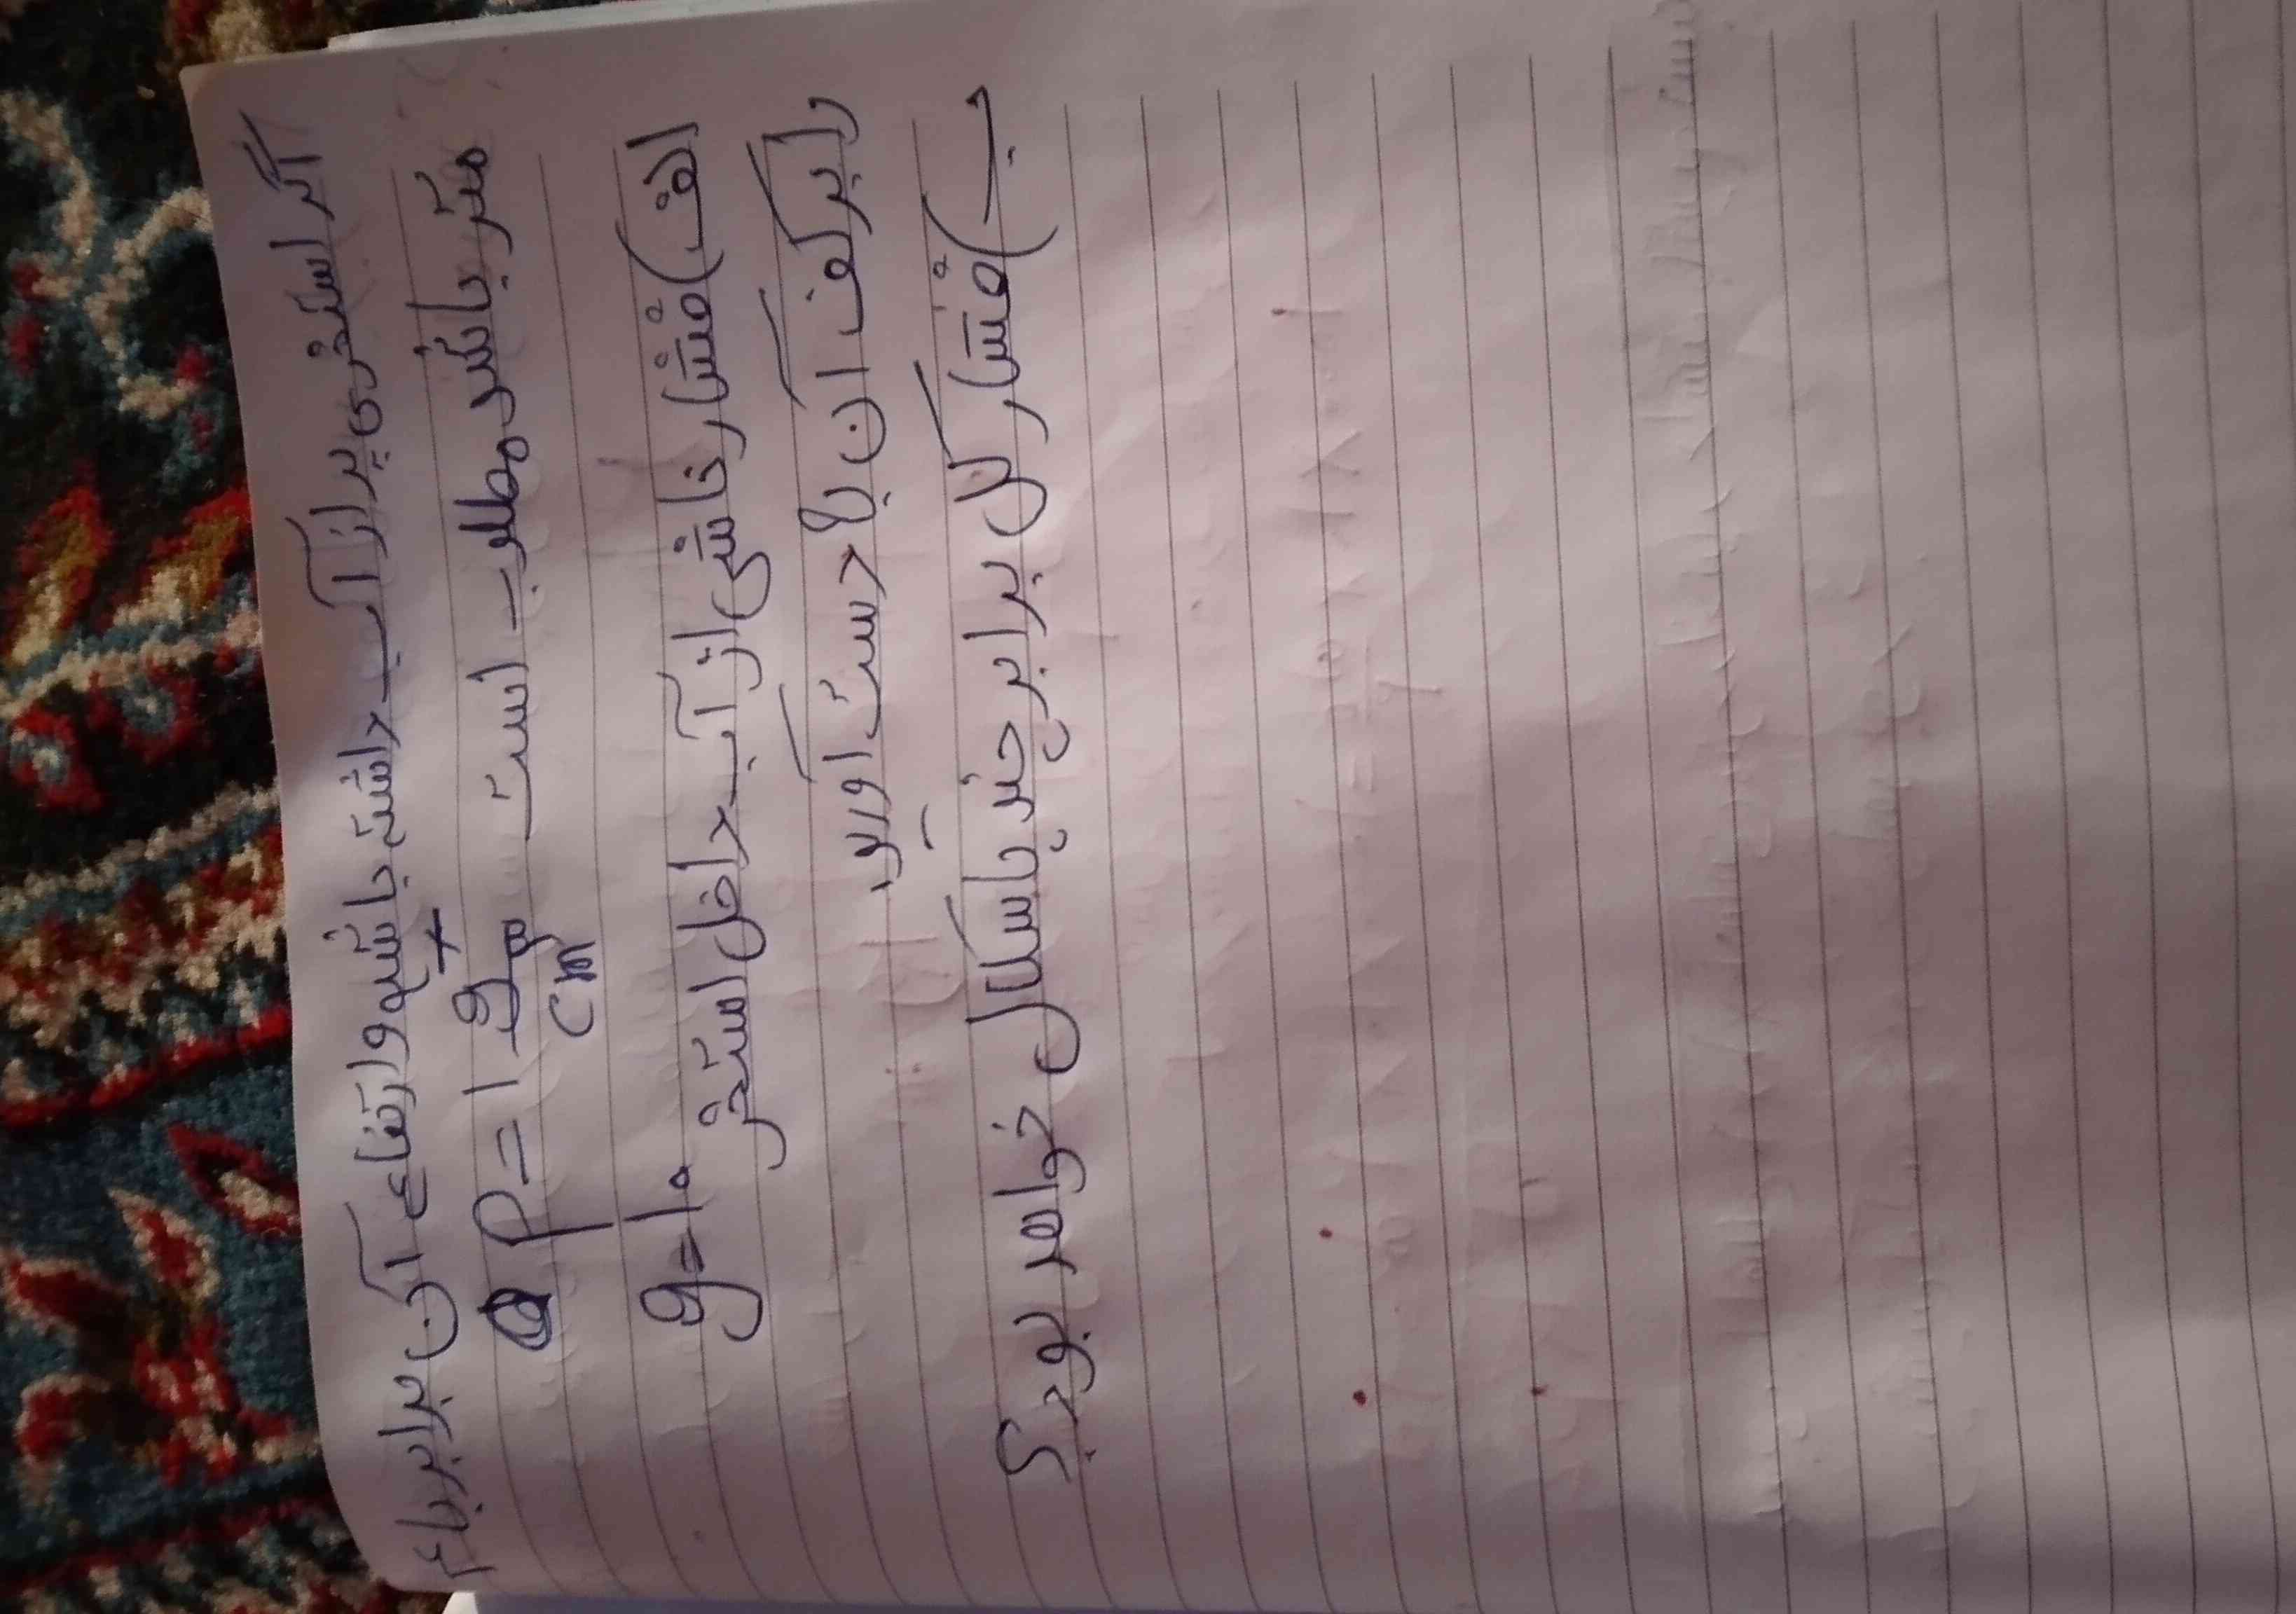 اگر استخری پر از آب داشته باشیم و ارتفاع آن برابر با ۴
متر باشد مطلوب است ρ = 1 g/cm³
الف) فشار ناشی از آب داخل استخر g=10
را بر کف آن به دست آورید
ب) فشار کل برابر چند پاسکال خواهد بود؟